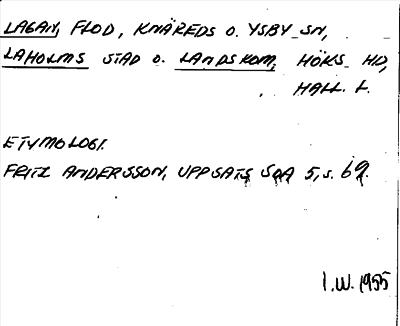 LAGAN, FLOD, KNÄREDS O. YSBY SN,
LAHOLMS STAD O. LANDSKOM, HÖKS HD,
HALL. L.
ETYMOLOGI.
FRITZ ANDERSSON, UPPSATS SOA 5, S. 69.
I.W. 1955